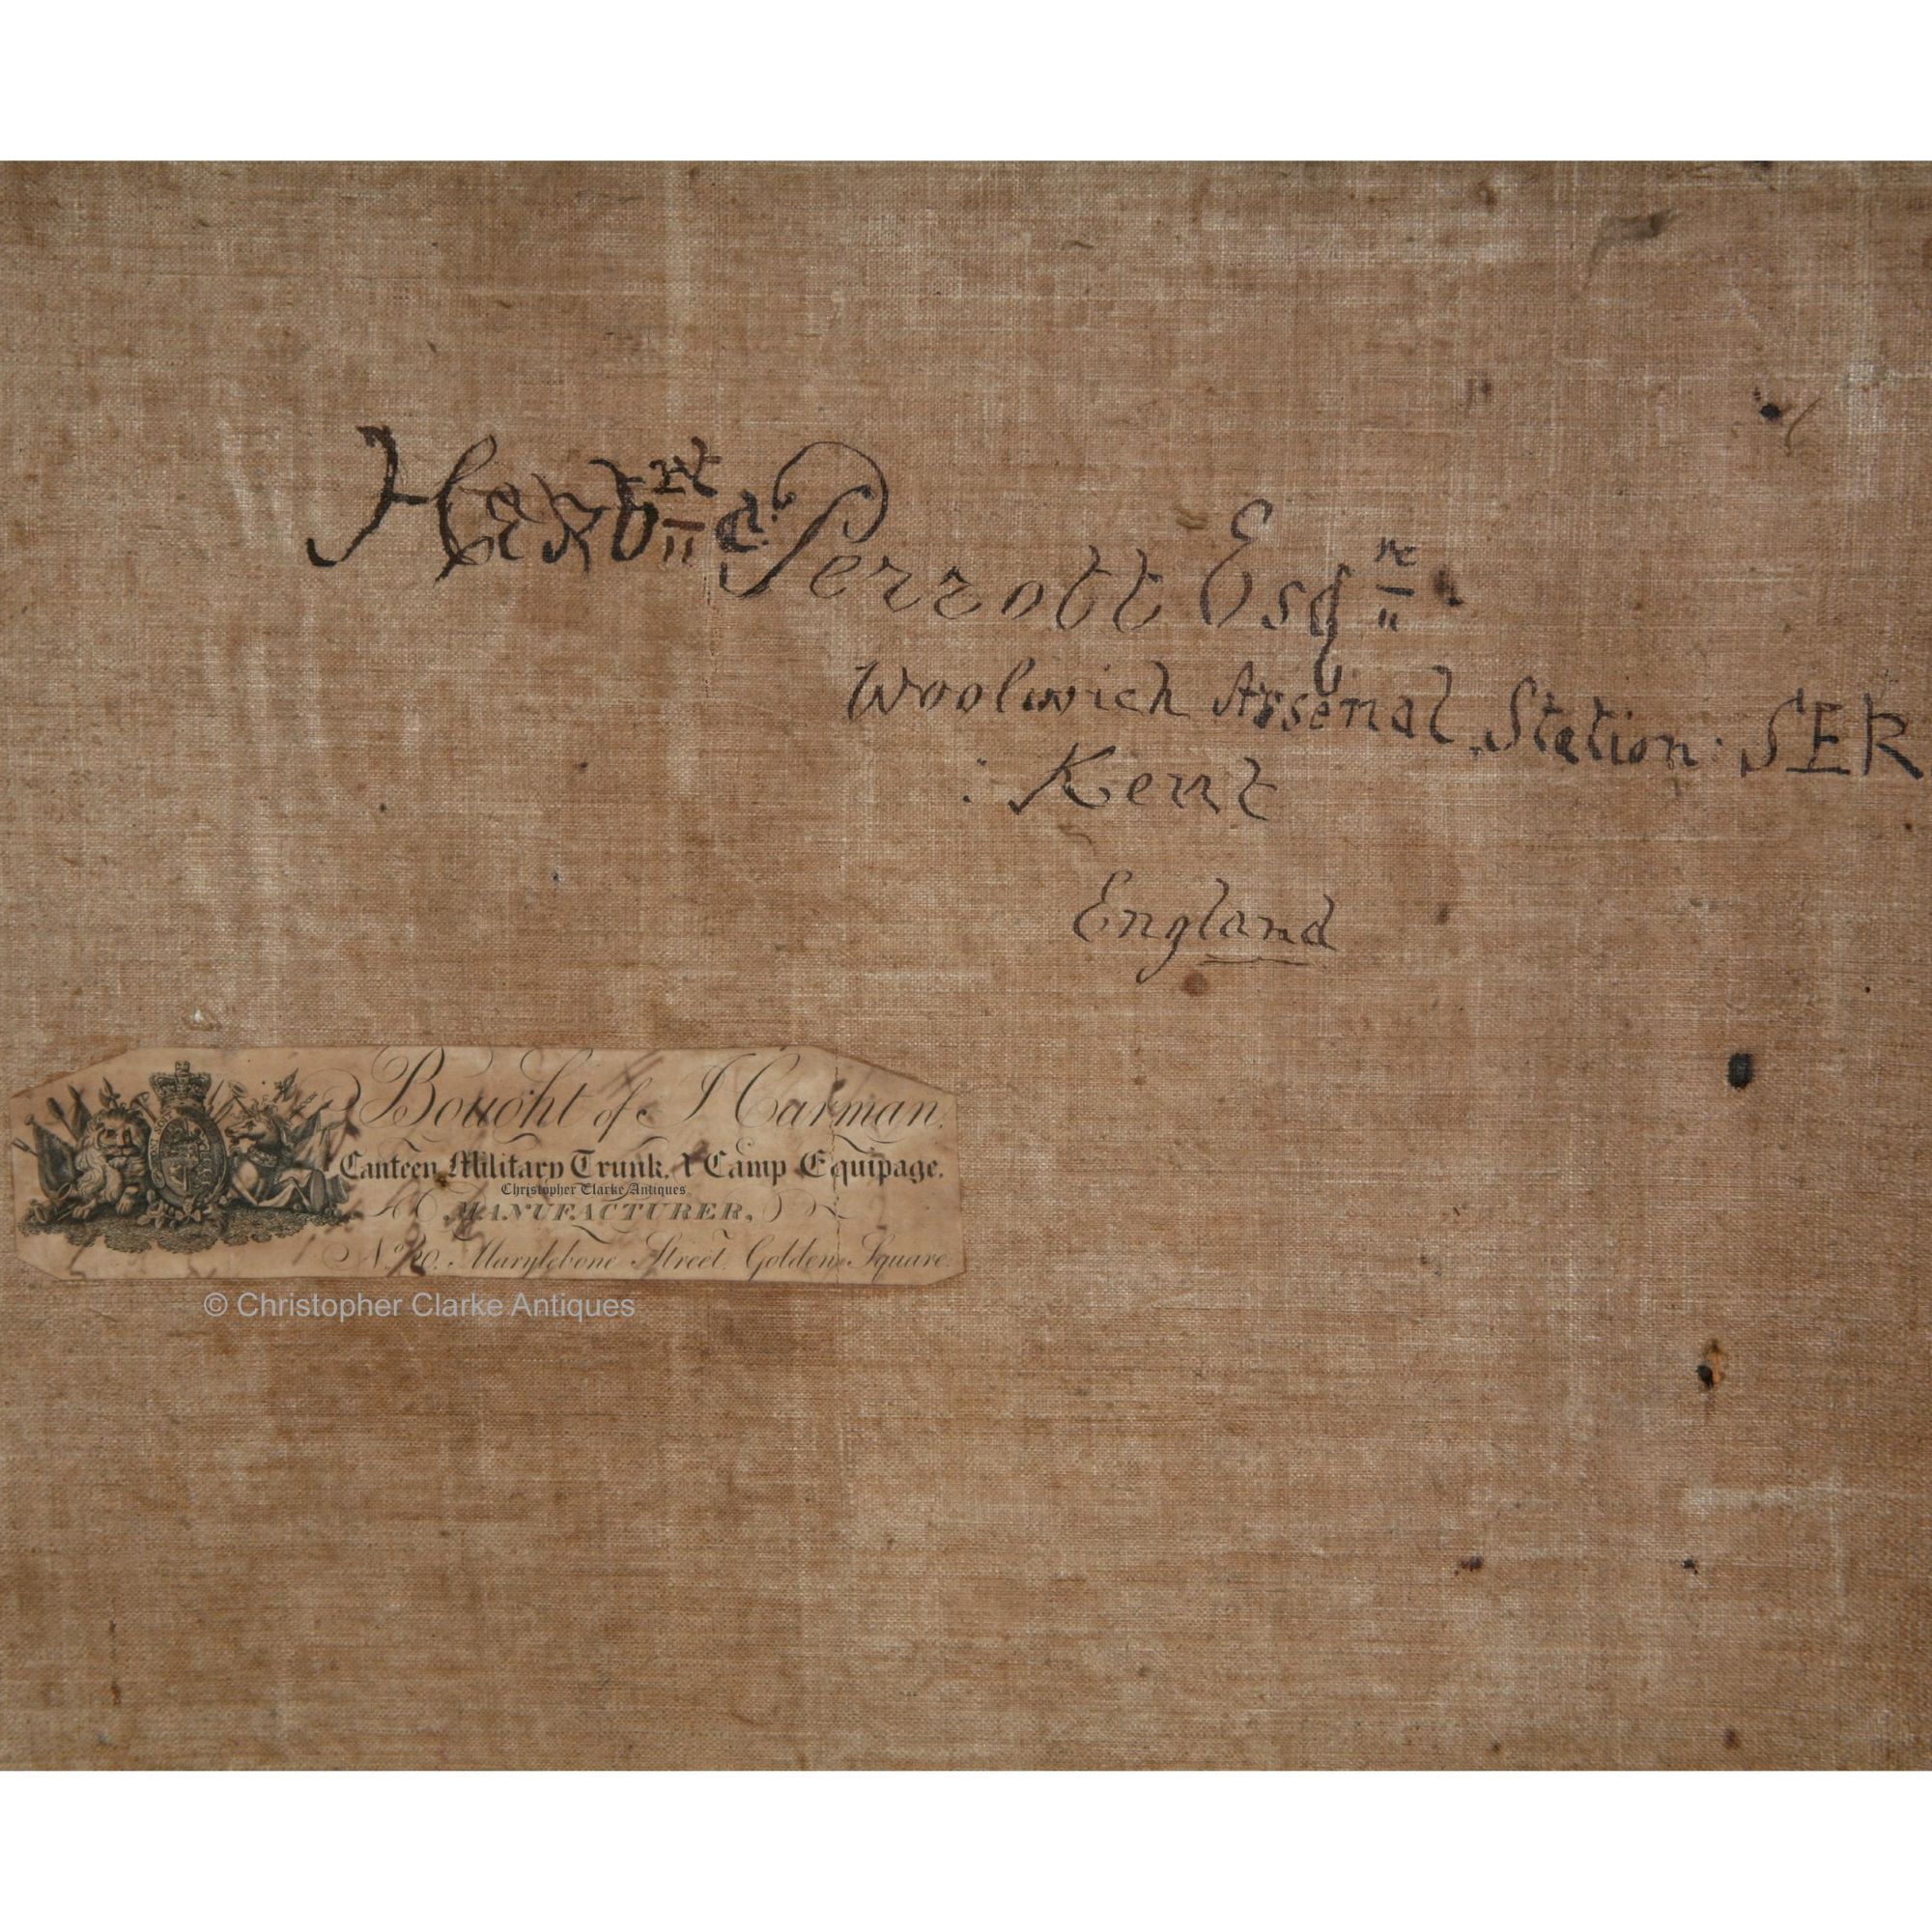 Herbrt a. Perrott Esqre.
Woolwich Arsenal Station: SER
: Kent
England
Bought of I Carman,
Canteen Military Trunk, & Camp Equipage.
Christopher Clarke Antiques
MANUFACTURER,
No. 20, Marylebone Street, Golden Square.
© Christopher Clarke Antiques